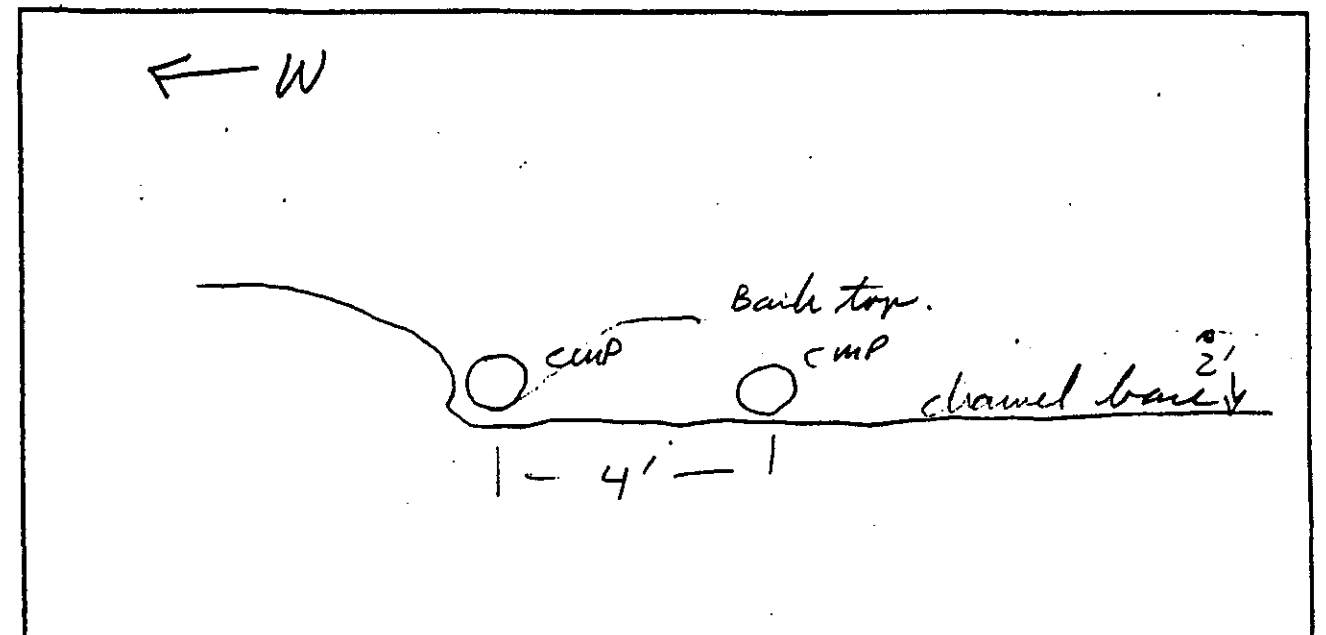 W
Bank top.
CMP
CMP
2'
channel base
4'